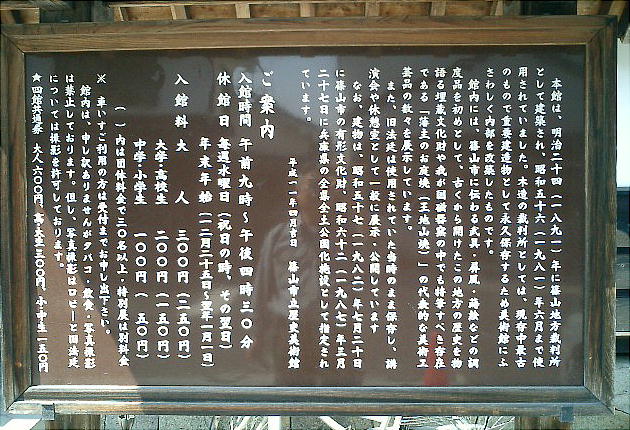 本館は、明治二十四（一八九一）年に篠山地方裁判所
として建築され、昭和五十六（一九八一）年六月まで使
用されていました。木造の裁判所としては、現存中最古
のもので重要建造物として永久保存するため美術館にふ
さわしく内部を改築したものです。
館内には、篠山市に伝わる武具・屏風・蒔絵などの調
度品を初めとして、古くから開けたこの地方の歴史を物
語る埋蔵文化財や我が国磁器窯の中でも特筆すべき存在
である「藩主のお庭焼（王地山焼）」の代表的な美術工
芸品の数々を展示しています。
また、旧法廷は使用されていた当時のまま保存し、講
演会や休憩室として一般に展示・公開しています
なお、建物は、昭和五十七（一九八二）年七月二十日
に篠山市の有形文化財、昭和六十二（一九八七）年三月
二十七日に兵庫県の全集全土公園化施設として指定され
ています。
平成一一年四月廿日　篠山市立歴史美術館
ご案内
入館時間　午前九時～午後四時三〇分
休館日　毎週水曜日（祝日の時、その翌日）
年末年始（一二月二五日～翌年一月一日）
入館料　大人　三〇〇円（二五〇円）
大学・高校生　二〇〇円（一五〇円）
中学・小学生　一〇〇円（五〇円）
（　）内は団体料金で三〇名以上・特別展は別料金
※　車いすご利用の方は受付までお申し出下さい。
館内は、申し訳ありませんがタバコ・飲食・写真撮影
は禁止しております。但し、写真撮影はロビーと旧法廷
については撮影を許可しております。
★四館共通券　大人六〇〇円、高・大生三〇〇円、小中生一五〇円